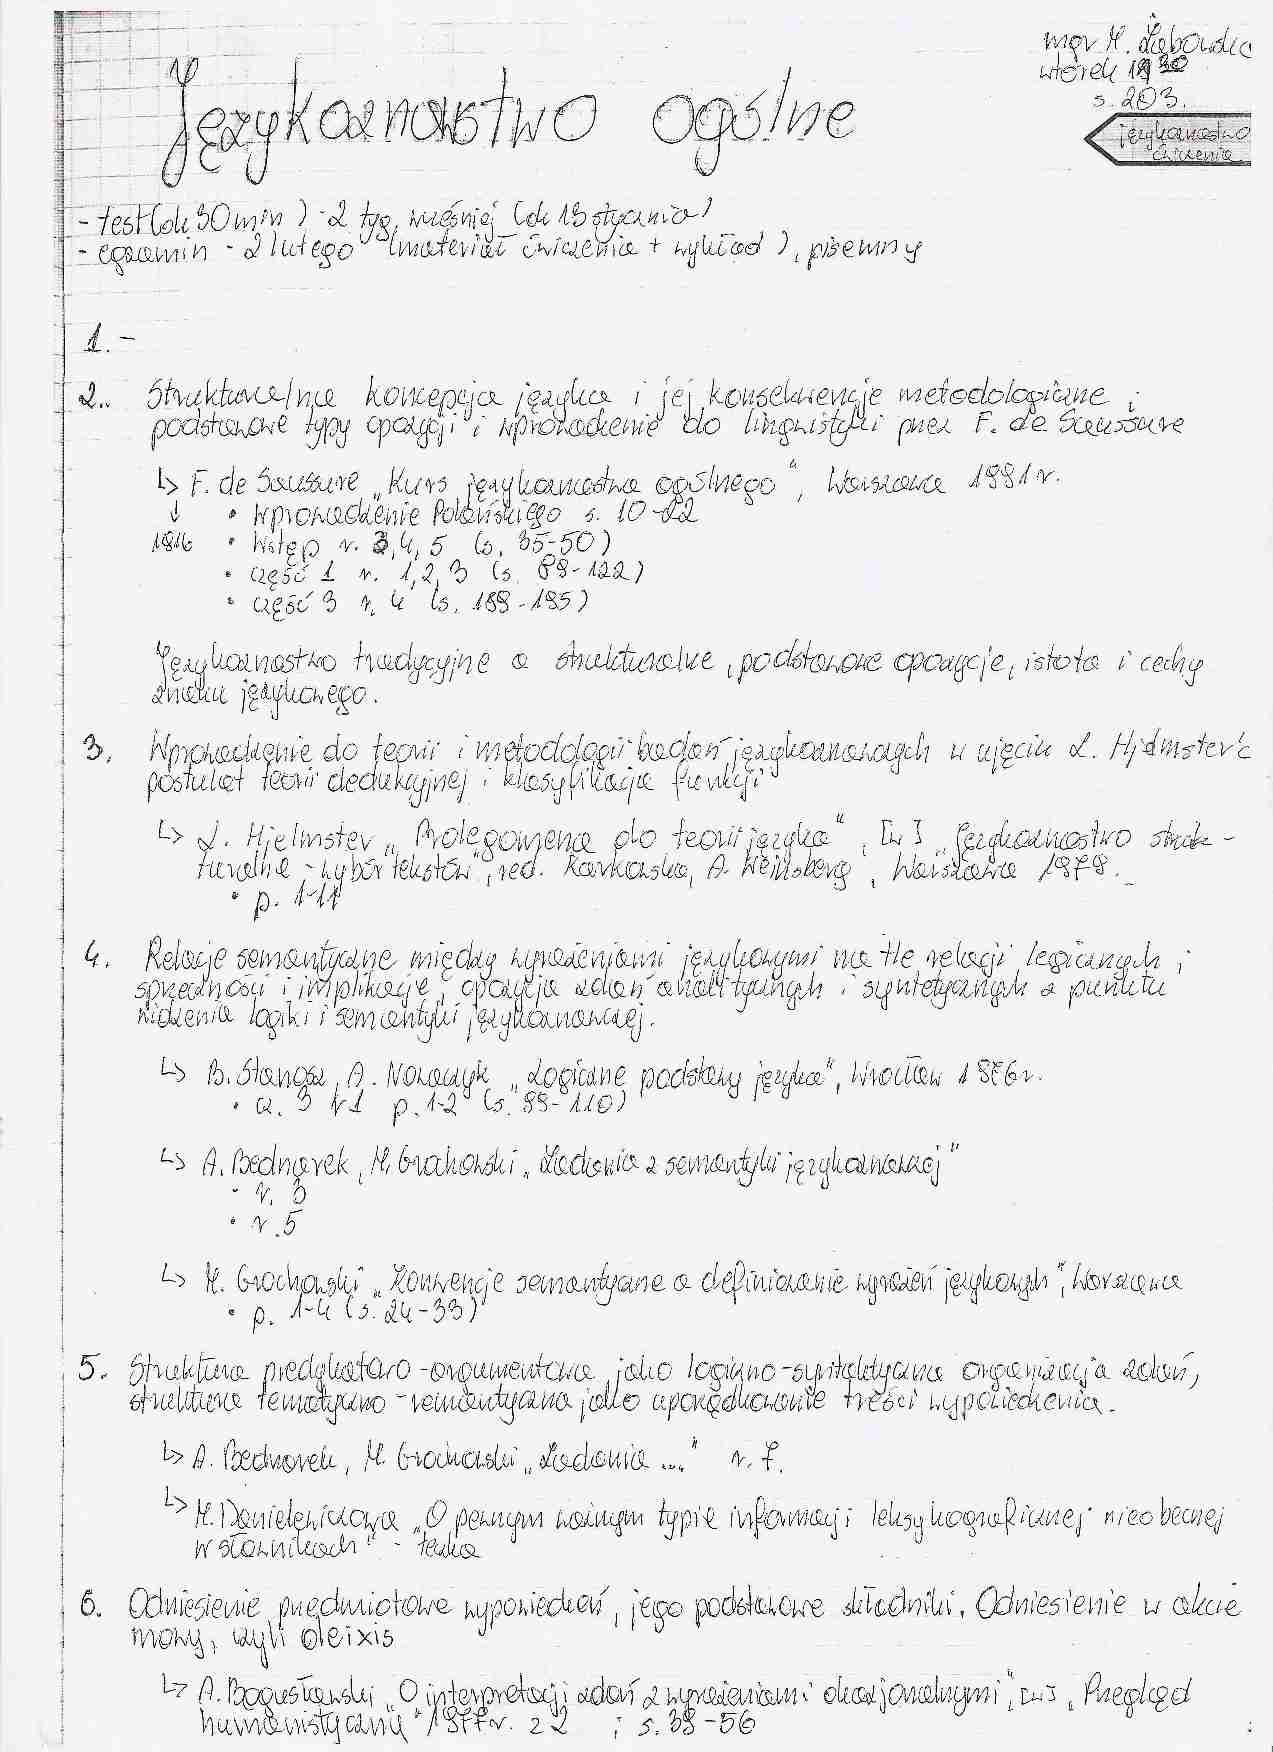 mgr M. Łabowska
wtorek
s. 203.
Językoznawstwo ogólne
językoznawstwo
ćwiczenia
- test (ok 30 min) - 2 tyg. wcześniej (ok 19 stycznia)
- egzamin - 2 lutego (materiał ćwiczenia + wykład), pisemny
1. -
2. Strukturalna koncepcja języka i jej konsekwencje metodologiczne;
podstawowe typy opozycji i wprowadzenie do lingwistyki przez F. de Saussure
↳ F. de Saussure „Kurs językoznawstwa ogólnego", Warszawa 1991 r.
↓ • Wprowadzenie Polańskiego s. 10-22
1916 • Wstęp r. 3, 4, 5 (s. 35-50)
• część 1 r. 1, 2, 3 (s. 89-122)
• część 3 r. 4 (s. 189-195)
Językoznawstwo tradycyjne a strukturalne, podstawowe opozycje, istota i cechy
znaku językowego.
3. Wprowadzenie do teorii i metodologii badań językoznawczych w ujęciu L.
postulat teorii dedukcyjnej i klasyfikacja funkcji
↳ L. Hjelmslev „Prolegomena do teorii języka", [w] „Językoznawstwo struk-
turalne - wybór tekstów", red. Kurkowska, A. Weinsberg, Warszawa 1979.
• p. 1-11
4. Relacje semantyczne między wyrażeniami językowymi na tle relacji logicznych;
sprzeczności i implikacje; opozycja zdań analitycznych i syntetycznych z punktu
widzenia logiki i semantyki językoznawczej.
↳ B. Stanosz, A. Nowaczyk „Logiczne podstawy języka", Wrocław 1976 r.
• cz. 3 r. 1 p. 1-2 (s. 99-110)
↳ A. Bednarek, M. Grochowski „Zadania z semantyki językoznawczej"
• r. 3
• r. 5
↳ M. Grochowski „Konwencje semantyczne a definiowanie wyrażeń językowych", Warszawa
• p. 1-4 (s. 24-33)
5. Struktura predykatowo-argumentowa jako logiczno-syntaktyczna organizacja zdań,
struktura tematyczno-rematyczna jako uporządkowanie treści wypowiedzenia.
↳ A. Bednarek, M. Grochowski „Zadania ...." r. 7.
↳ M. Danielewiczowa „O pewnym ważnym typie informacji leksykograficznej nieobecnej
w słownikach" - teczka
6. Odniesienie przedmiotowe wypowiedzeń, jego podstawowe składniki. Odniesienie w akcie
mowy, czyli deixis
↳ A. Bogusławski „O interpretacji zdań z wyrażeniami okazjonalnymi", [w] „Przegląd
humanistyczny" 1977 r. z 2 ; s. 39-56